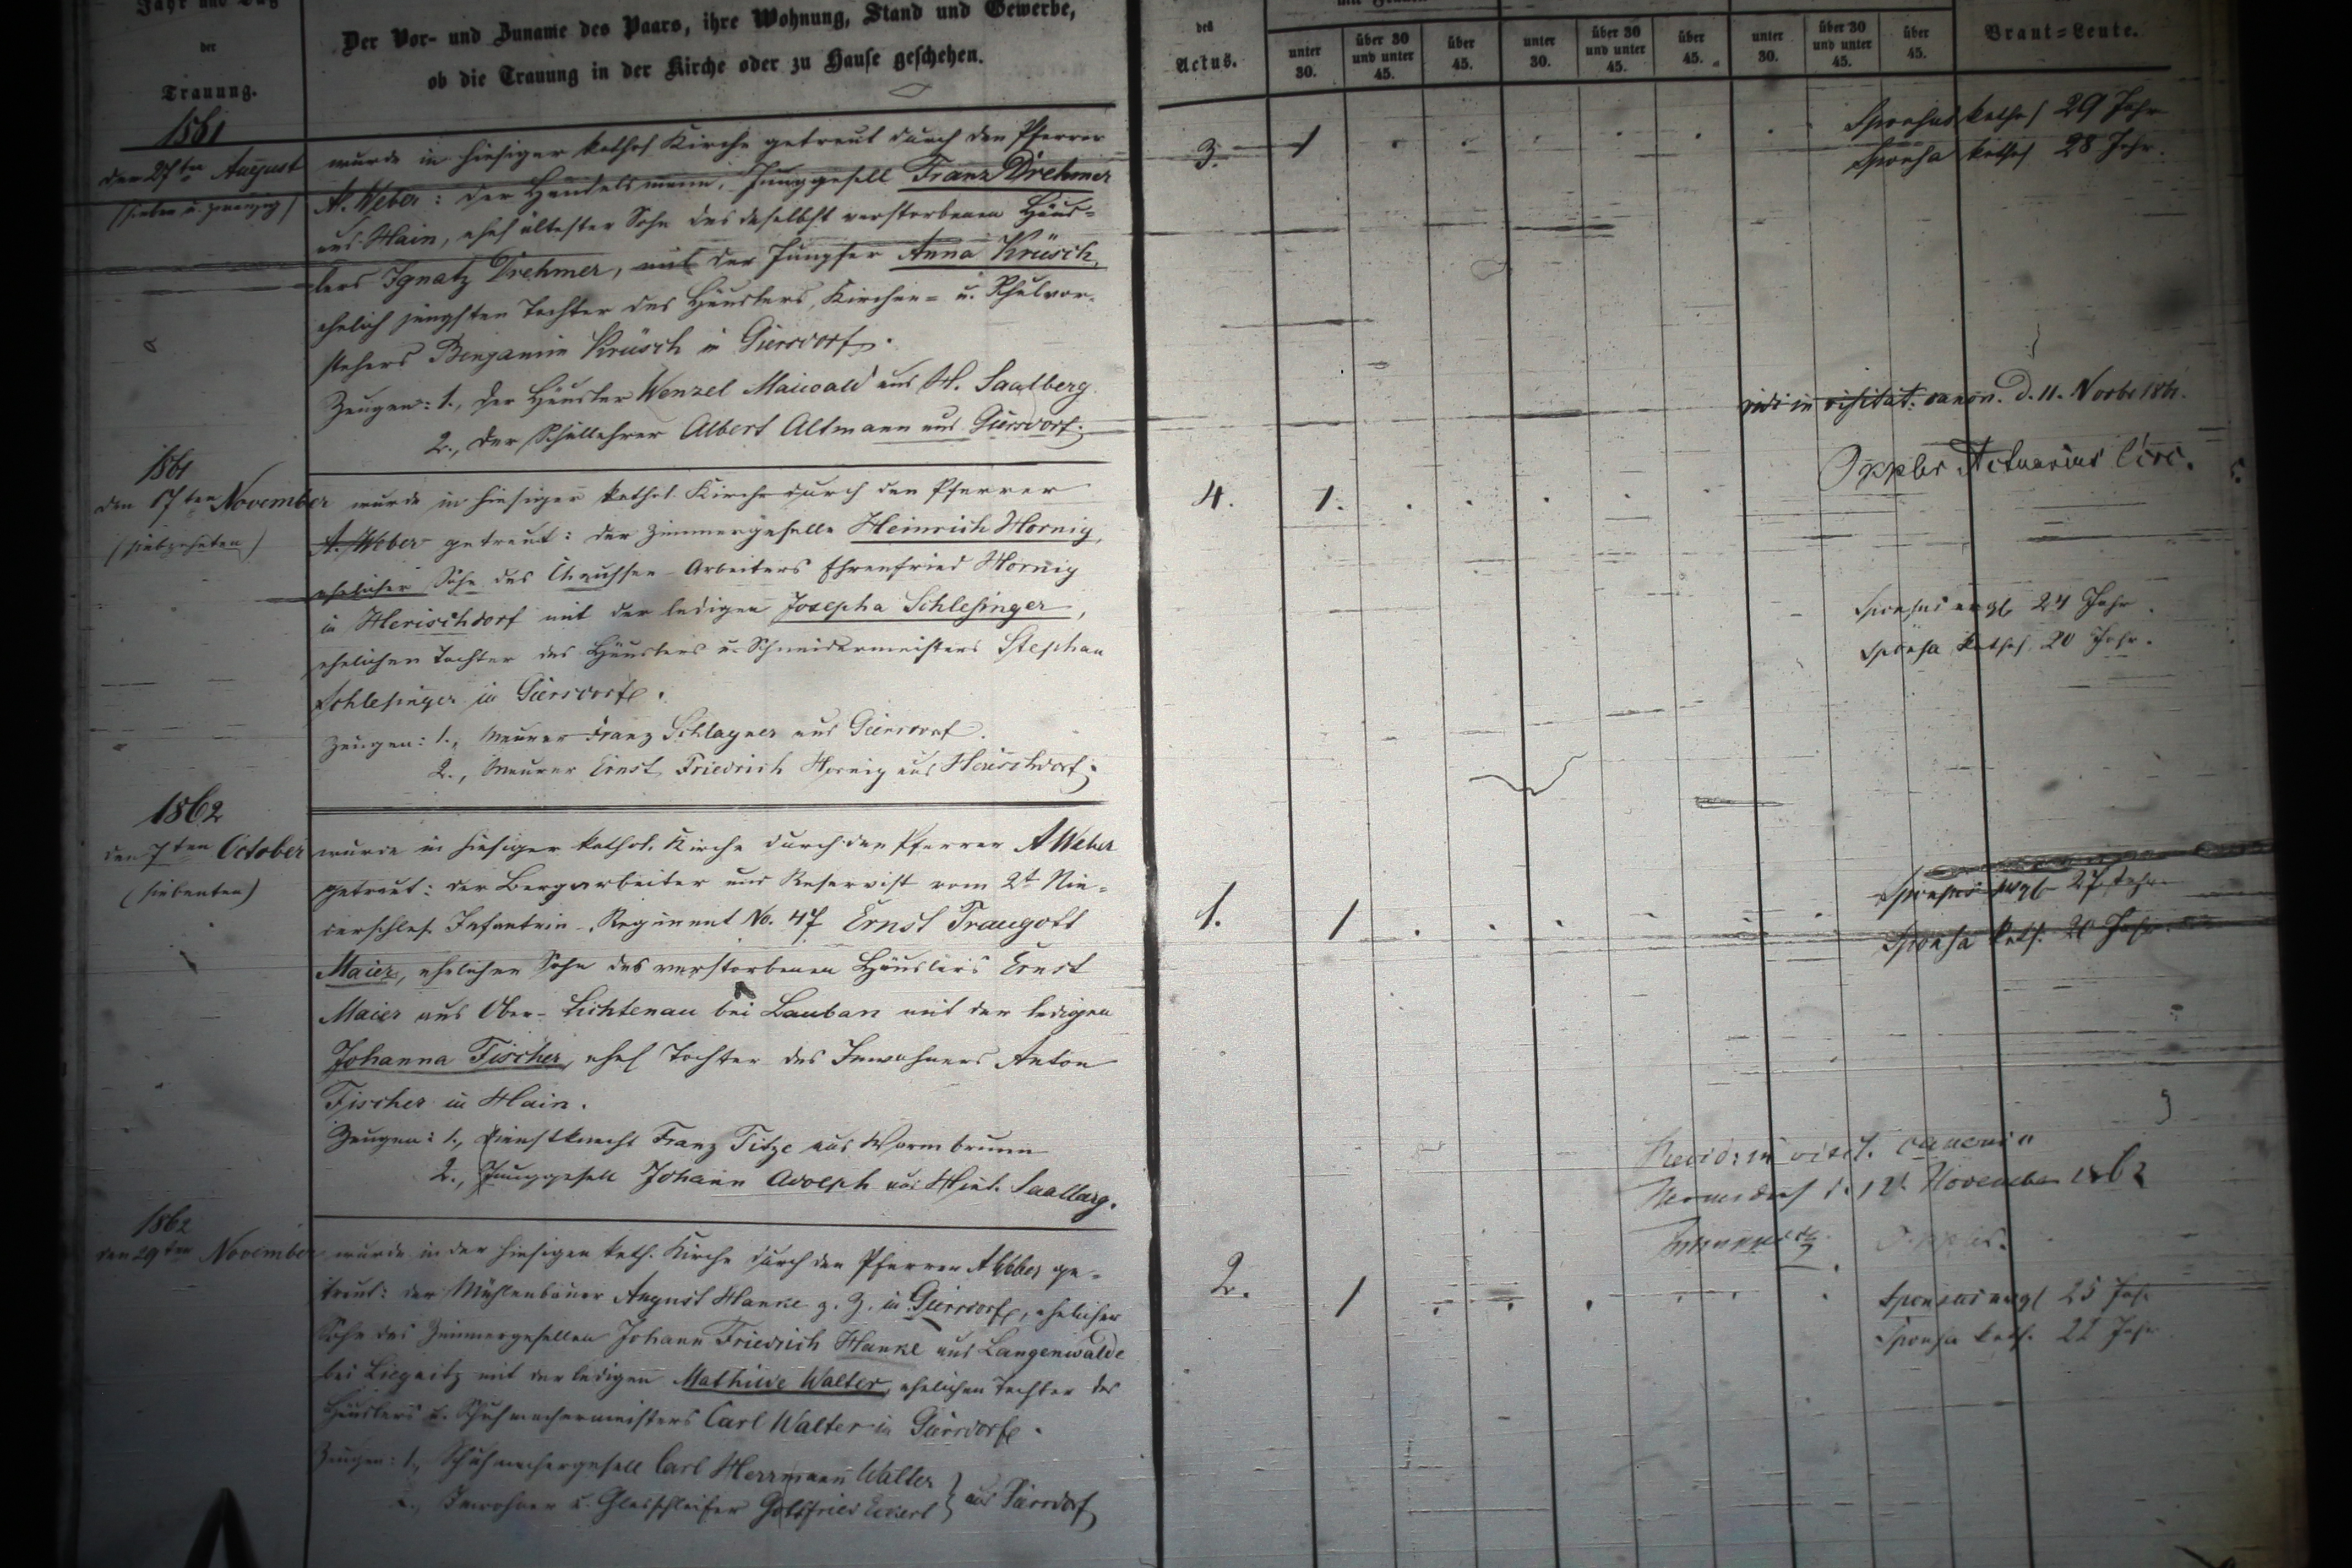 Jahr und Tag
der
Trauung.
Der Vor- und Zuname des Paars, ihre Wohnung, Stand und Gewerbe,
ob die Trauung in der Kirche oder zu Hause geschehen.
des
Actus.
unter
30.
über 30
und unter
45.
über
45.
unter
30.
über 30
und unter
45.
über
45.
unter
30.
über 30
und unter
45.
über
45.
Braut-Leute.
1861
den 27ten August
(sieben u. zwanzig)
wurde in hiesiger kathol Kirche getraut durch den Pfarrer
A. Weber: der Handelsmann, Junggesell Franz Drehmer
aus Hain, ehel ältester Sohn des daselbst verstorbenen Häus-
lers Ignatz Drehmer, mit der Jungfer Anna Krüsch,
ehelich jüngsten Tochter des Häuslers, Kirchen- u. Schulvor-
stehers Benjamin Krüsch in Giersdorf.
Zeugen: 1., der Häusler Wenzel Maiwald aus H. Saalberg
2., der Schullehrer Albert Altmann aus Giersdorf.
3.
1
Sponsus kathol 29 Jahr
Sponsa kathol 28 Jahr.
vidi in visitat. canon. d. 11. Novbr 1861.
Oppler Actuarius Circ.
1861
den 17ten November
(siebzehnten)
wurde in hiesiger kathol. Kirche durch den Pfarrer
A. Weber getraut: der Zimmergeselle Heinrich Hornig,
ehelicher Sohn des Chaussee-Arbeiters Ehrenfried Hornig
in Herischdorf mit der ledigen Josepha Schlesinger,
ehelichen Tochter des Häuslers u. Schneidermeisters Stephan
Schlesinger in Giersdorf.
Zeugen: 1., Maurer Franz Schlagner aus Giersdorf.
2., Maurer Ernst Friedrich Hornig aus Herischdorf.
4.
1.
Sponsus evgl 24 Jahr.
Sponsa kathol 20 Jahr.
1862
den 7ten October
(siebenten)
wurde in hiesiger kathol. Kirche durch den Pfarrer A Weber
getraut: der Bergarbeiter und Reservist vom 2t Nie-
derschles. Infanterie-Regiment No. 47 Ernst Traugott
Maier, ehelicher Sohn des verstorbenen Häuslers Ernst
Maier aus Ober-Lichtenau bei Lauban mit der ledigen
Johanna Fischer, ehel Tochter des Inwohners Anton
Fischer in Hain.
Zeugen: 1., Dienstknecht Franz Titze aus Warmbrunn
2., Junggesell Johann Adolph aus Hint. Saalberg.
1.
1
Sponsus evgl 27 Jahr
Sponsa kath. 20 Jahr
Revid: in visit. canonic
Hermsdorf d. 12t November 1862
1862
den 29ten November
wurde in der hiesigen kath. Kirche durch den Pfarrer A Weber ge-
traut: der Mühlenbauer August Hanke z. Z. in Giersdorf, ehelicher
Sohn des Zimmergesellen Johann Friedrich Hanke aus Langenwalde
bei Liegnitz mit der ledigen Mathilde Walter, ehelichen Tochter des
Häuslers u. Schuhmachermeisters Carl Walter in Giersdorf.
Zeugen: 1., Schuhmachergesell Carl Herrmann Walter
2., Inwohner u. Glasschleifer Gottfried Eckert } aus Giersdorf
2.
1
Sponsus evgl 25 Jahr
Sponsa kath. 22 Jahr